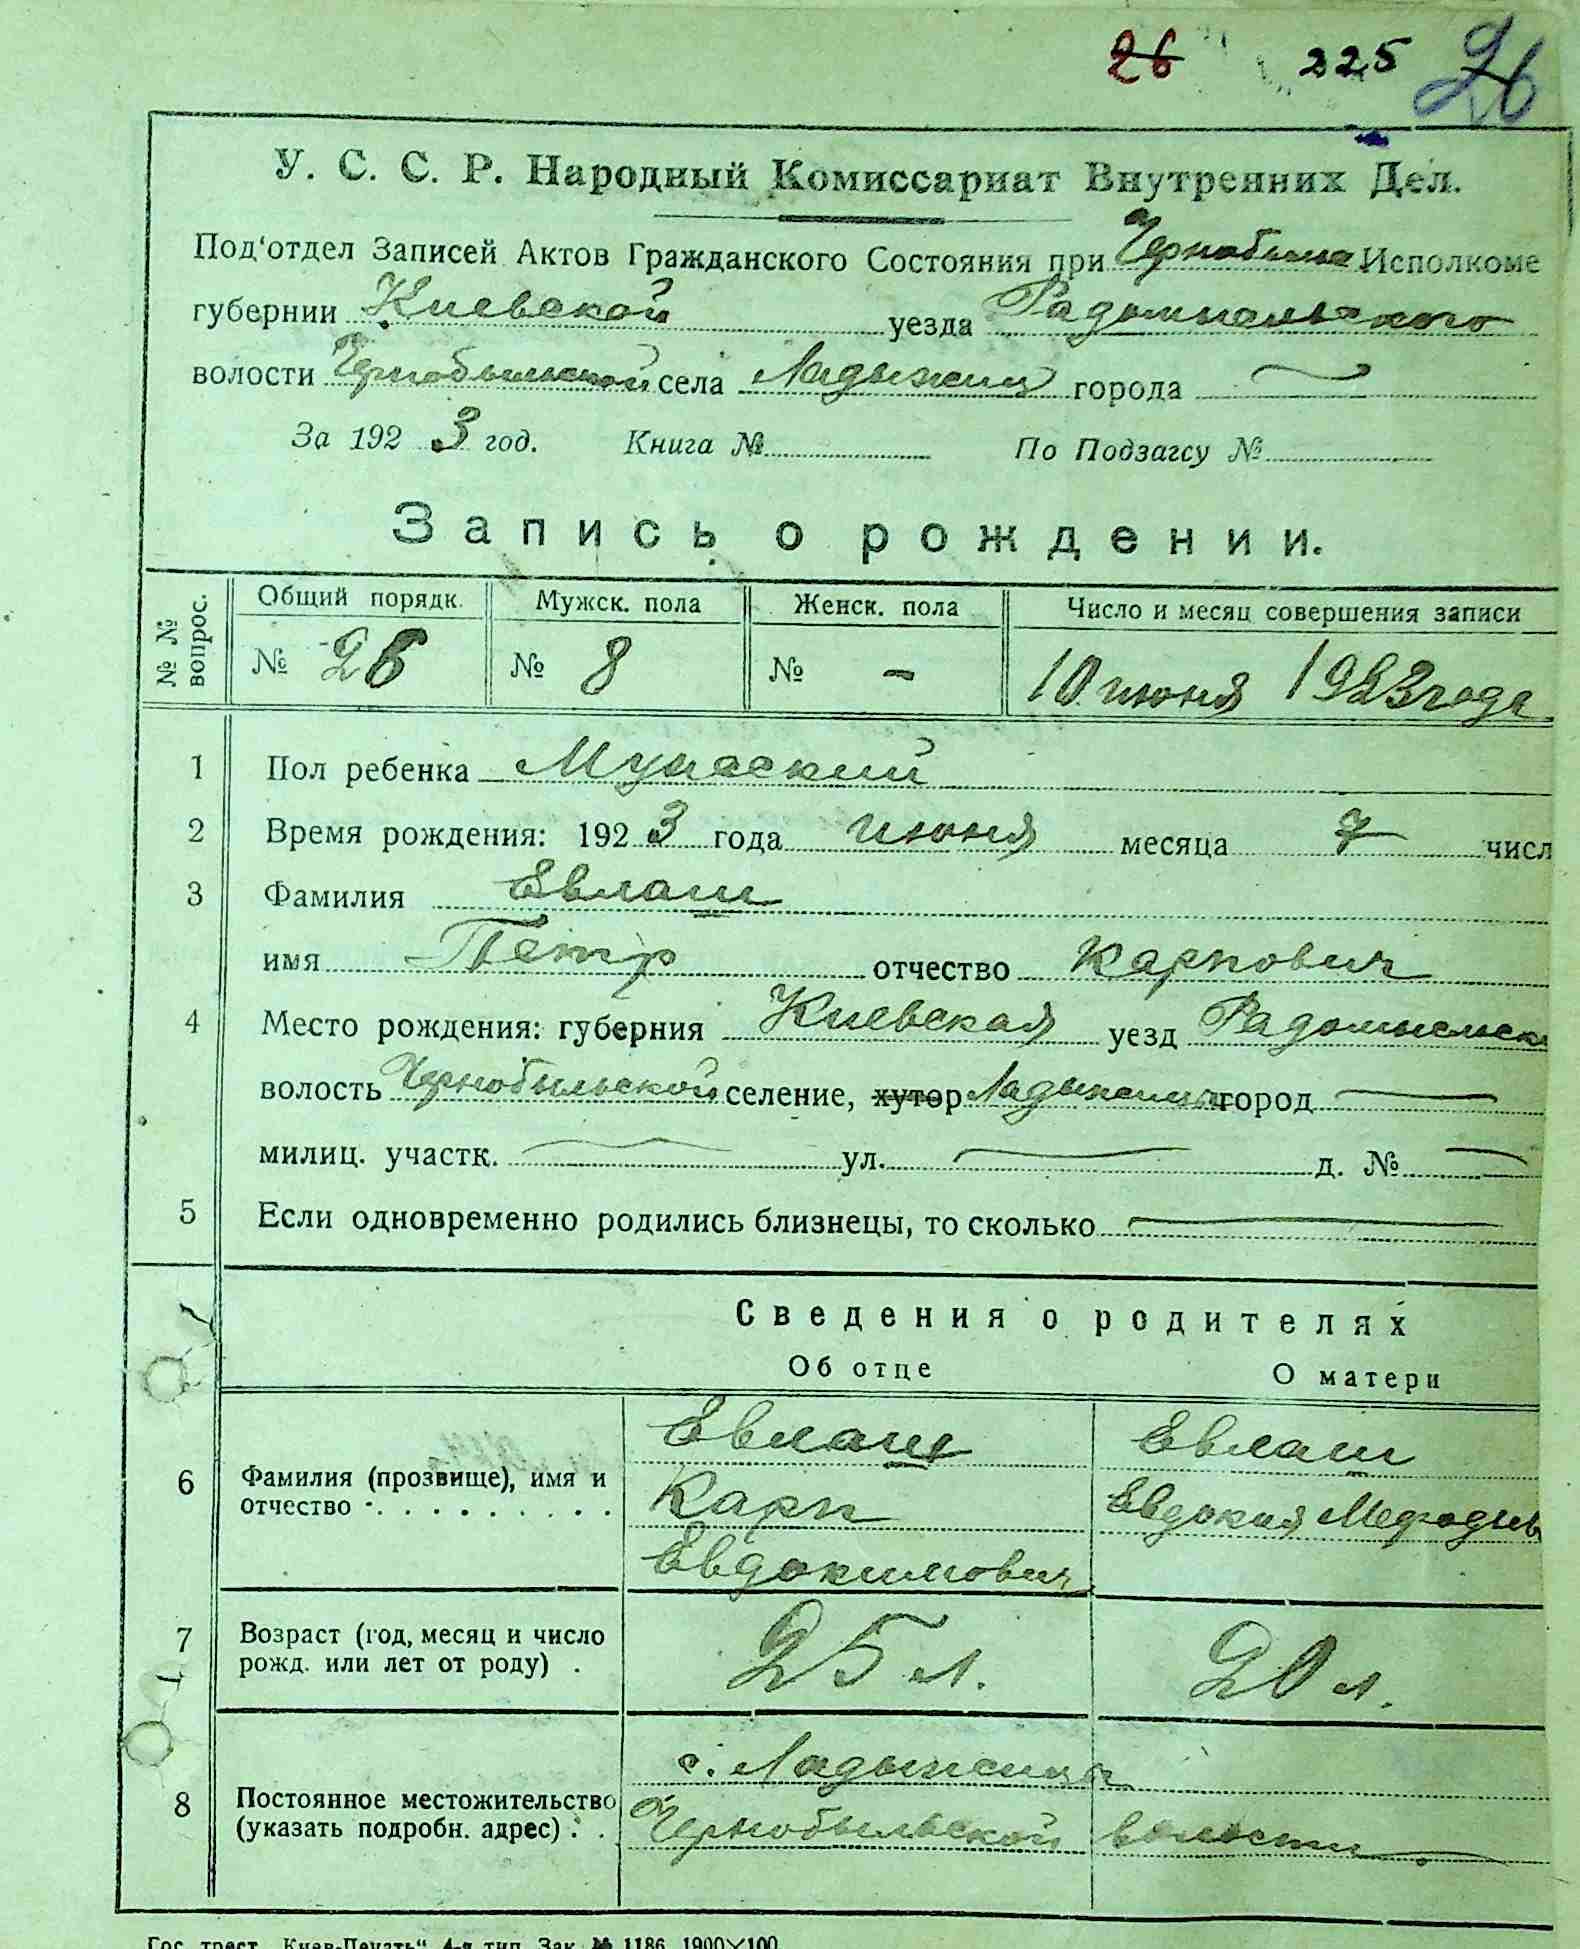 26 225 26
У. С. С. Р. Народный Комиссариат Внутренних Дел.
Под'отдел Записей Актов Гражданского Состояния при Чернобыльс. Исполкоме
губернии Киевской уезда Радомысльского
волости Чернобыльской села Ладыжичи города —
За 1923 год. Книга № По Подзагсу №
Запись о рождении.
№ № вопрос. Общий порядк. Мужск. пола Женск. пола Число и месяц совершения записи
№ 26 № 8 № - 10 июня 1923 года
1 Пол ребенка Мужеский
2 Время рождения: 1923 года июня месяца 7 числ
3 Фамилия Евлаш
имя Петр отчество Карпович
4 Место рождения: губерния Киевская уезд Радомысльск
волость Чернобыльской селение, хутор Ладыжичи город —
милиц. участк. — ул. — д. № —
5 Если одновременно родились близнецы, то сколько —
Сведения о родителях
Об отце О матери
Евлаш Евлаш
6 Фамилия (прозвище), имя и отчество Карп Евдокия Мефодьев
Евдокимович
7 Возраст (год, месяц и число рожд. или лет от роду) 25 л. 20 л.
с. Ладыжичи
8 Постоянное местожительство (указать подробн. адрес) Чернобыльской волости
Гос. трест „Киев-Печать“ 4-я тип. Зак. № 1186 1900×100